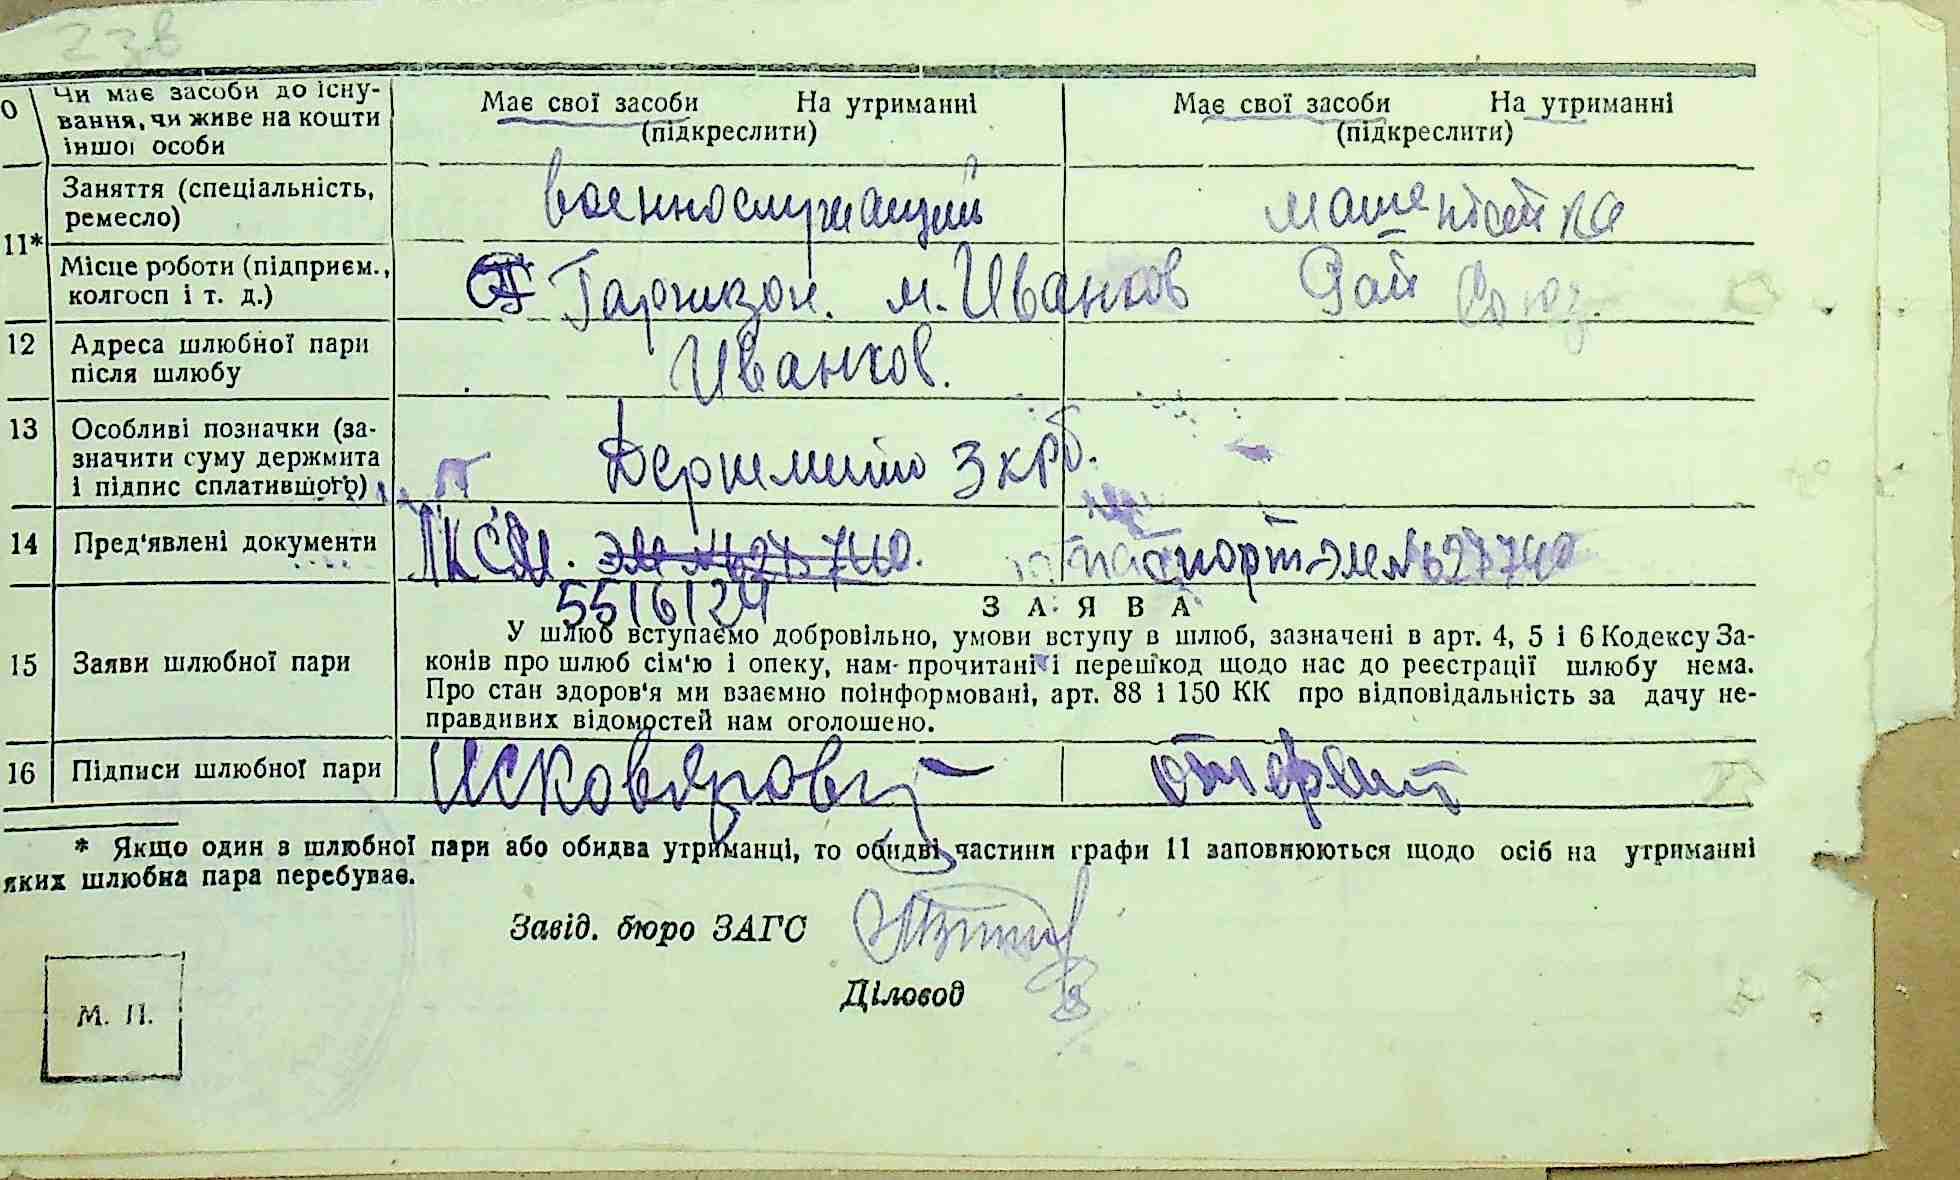 23в
0 Чи має засоби до існу-
вання, чи живе на кошти
іншої особи
Має свої засоби На утриманні
(підкреслити)
Має свої засоби На утриманні
(підкреслити)
11*
Заняття (спеціальність,
ремесло)
военнослужащий
машенистка
Місце роботи (підприєм.,
колгосп і т. д.)
Гарнизон. м. Иванков
Рай Союз.
12 Адреса шлюбної пари
після шлюбу
Иванков.
13 Особливі позначки (за-
значити суму держмита
і підпис сплатившого)
Держмито 3 крб.
14 Пред'явлені документи
ЛКСМ. ЭМ №627740.
5516124
паспорт ЭМ №627740
15 Заяви шлюбної пари
ЗАЯВА
У шлюб вступаємо добровільно, умови вступу в шлюб, зазначені в арт. 4, 5 і 6 Кодексу За-
конів про шлюб сім'ю і опеку, нам прочитані і перешкод щодо нас до реєстрації шлюбу нема.
Про стан здоров'я ми взаємно поінформовані, арт. 88 і 150 КК про відповідальність за дачу не-
правдивих відомостей нам оголошено.
16 Підписи шлюбної пари
* Якщо один з шлюбної пари або обидва утриманці, то обидві частини графи 11 заповнюються щодо осіб на утриманні
яких шлюбна пара перебуває.
Завід. бюро ЗАГС
Діловод
М. П.